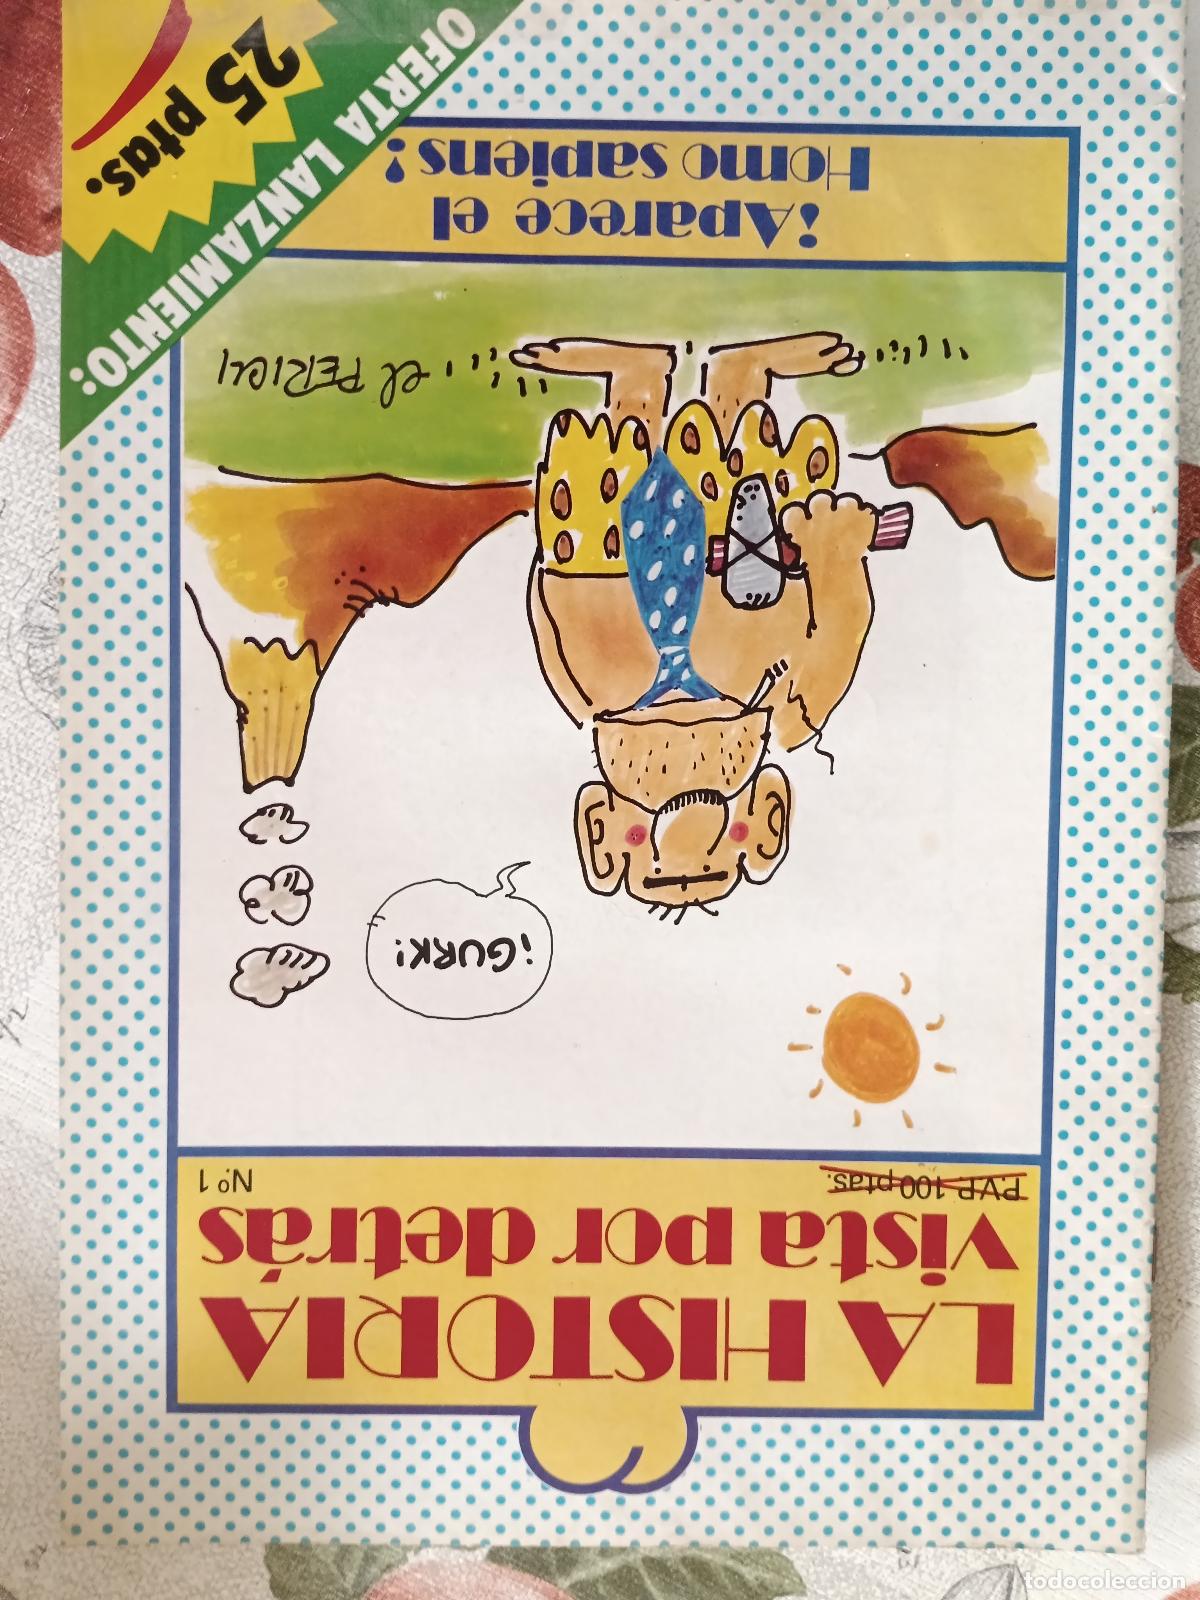 LA HISTORIA
vista por detrás
P.V.P. 100 ptas.
Nº 1
¡GURK!
el PERICH
¡Aparece el
Homo sapiens!
OFERTA LANZAMIENTO:
25 ptas.
todocoleccion